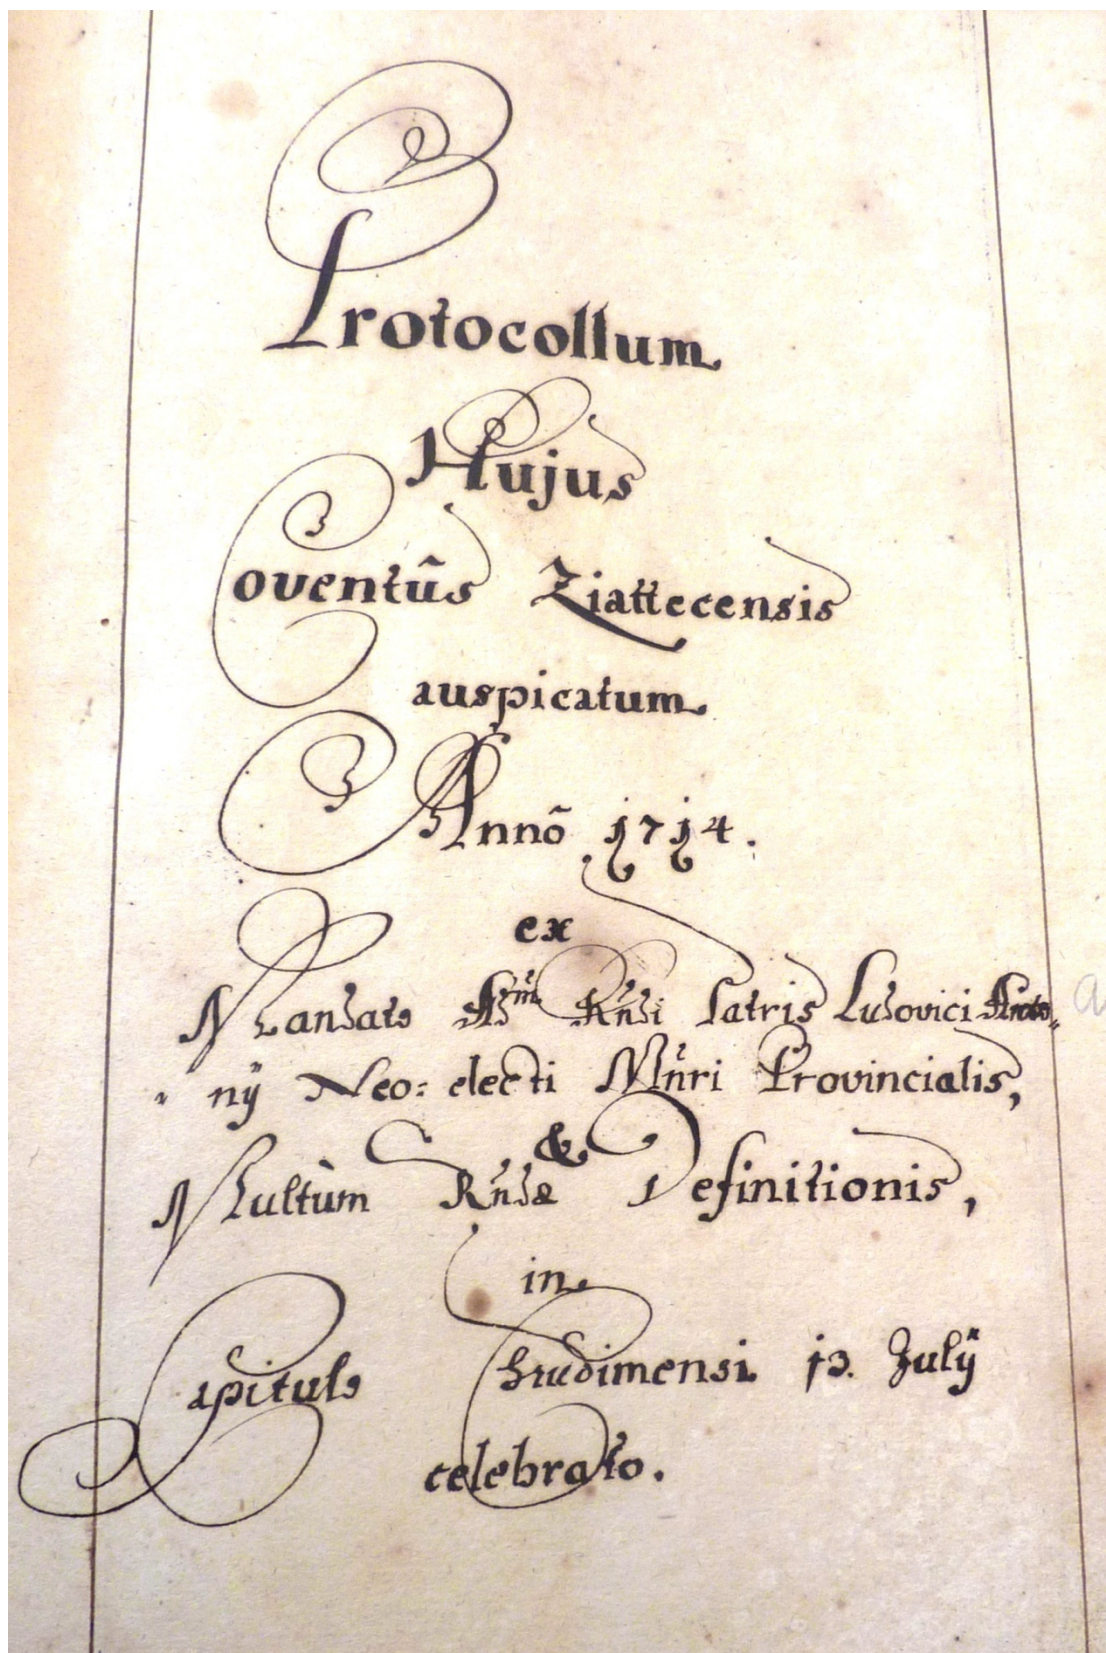 Protocollum
Hujus
Coventûs Ziattecensis
auspicatum
Annô 1714.
ex
Mandato Adm Rñdi Patris Ludovici Anto„
„ nÿ Neo: electi Mñri Provincialis,
&
Multùm Rñdæ Definitionis,
in
Capitulo Chrudimensi 13. Julÿ
celebrato.